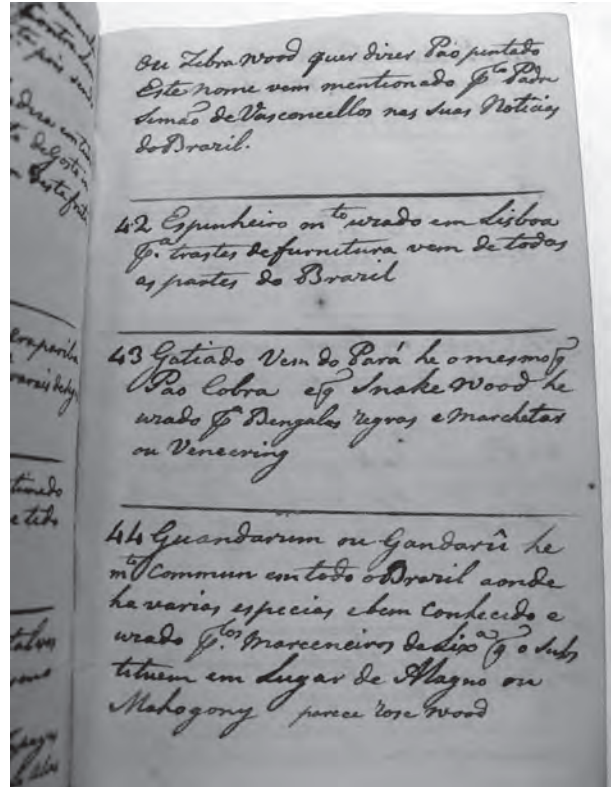 ou Zebra wood quer dizer Pao pintado
Este nome vem mentionado p.lo Padre
Simaõ de Vasconcellos nas suas Noticias
do Brazil.
42 Espinheiro m.to uzado em Lisboa
p.a trastes de furnitura vem de todas
as partes do Brazil
43 Gatiado Vem do Pará he o mesmo q
Pao Cobra e q Snake Wood he
uzado p.a Bengalas regras e Marchetar
ou Veneering
44 Guandarum ou Gandarû he
m.to Commun em todo o Brazil aonde
ha varias especias e bem Conhecido e
uzado p.los Marceneiros de Lix.a q o subs
tituem em Lugar de Magno ou
Mahogony parece rose wood